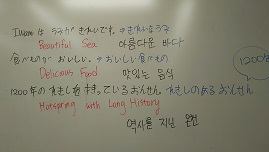 Iwami は うみが きれいです。 きれいなうみ
Beautiful Sea 아름다운 바다
食べものが おいしい。 おいしい食べもの
Delicious Food 맛있는 음식
1200年の れきしを 持っているおんせん。 れきしのあるおんせん
Hotspring with Long History
역사를 지닌 온천
1200